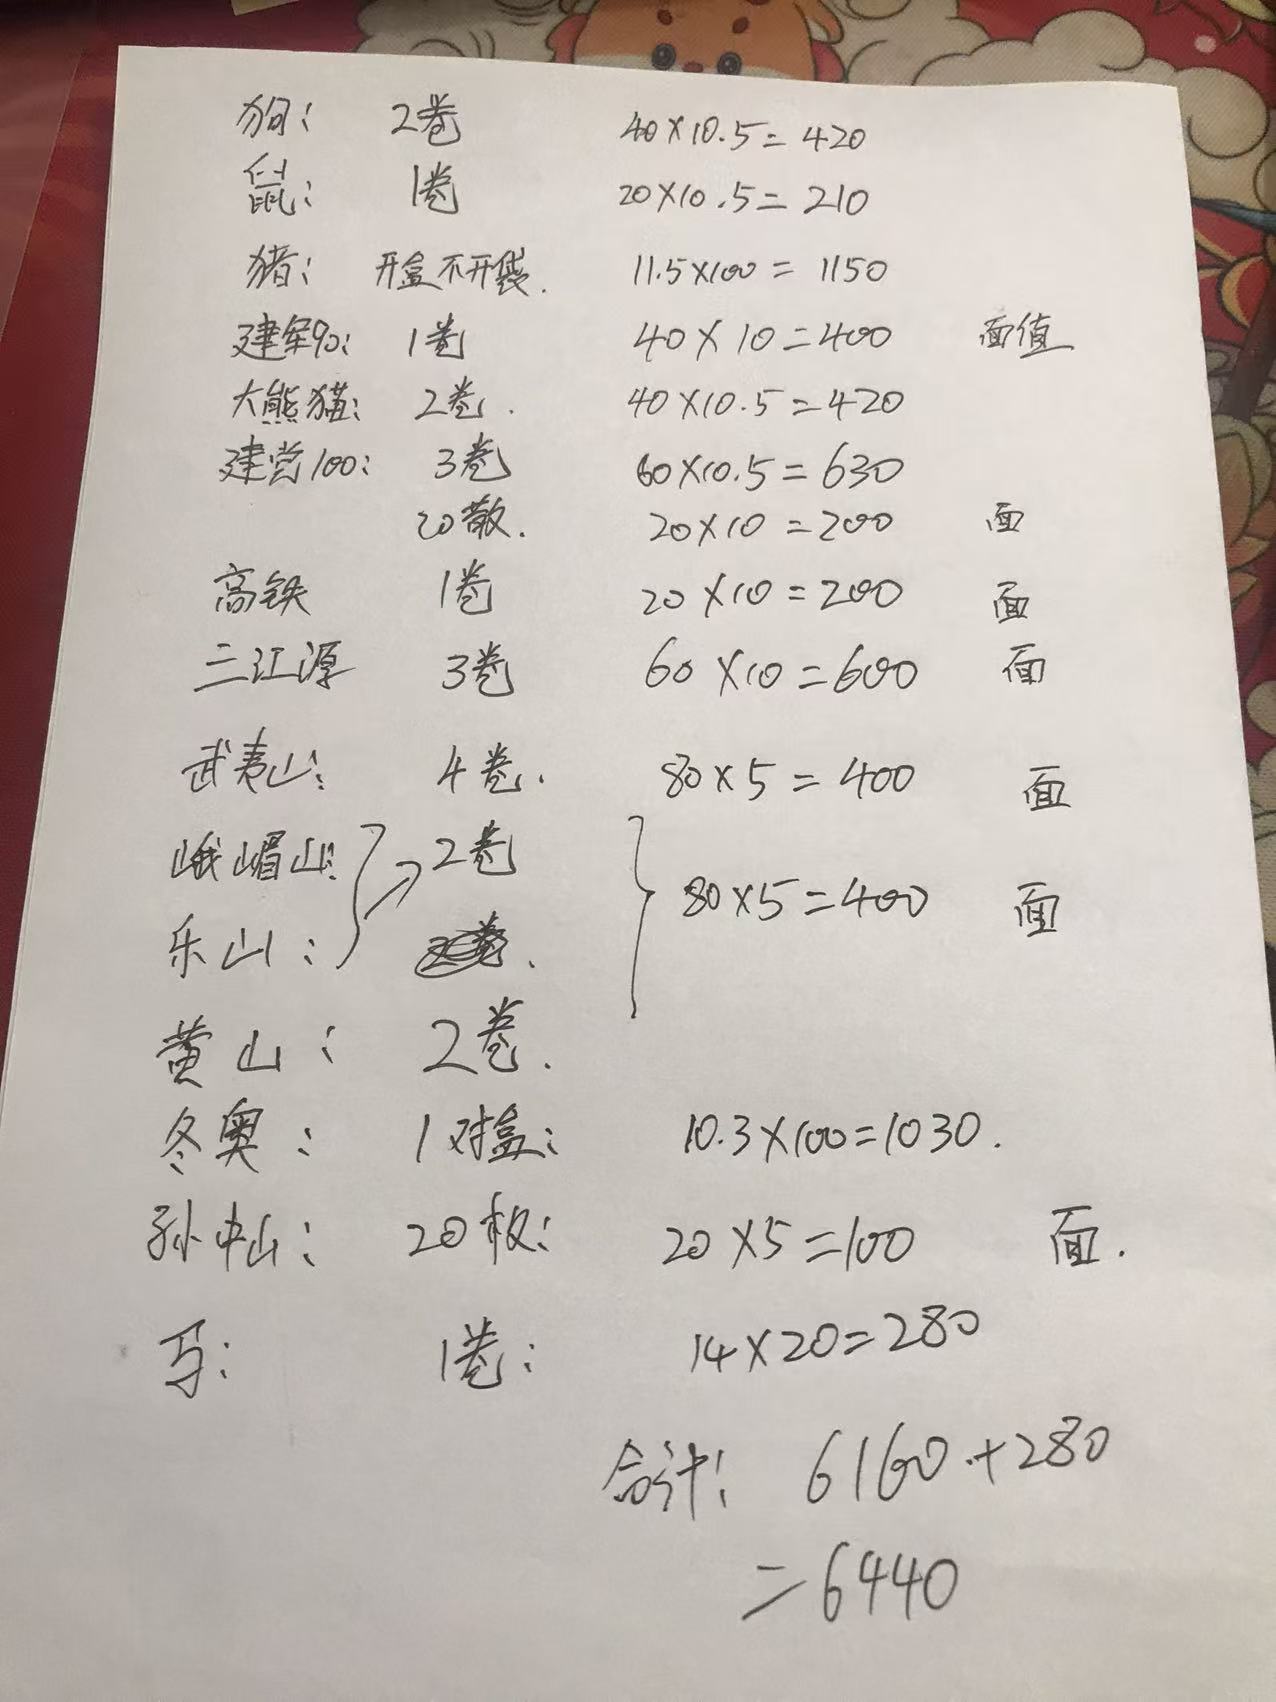 狗: 2卷 40×10.5=420
鼠: 1卷 20×10.5=210
猪: 开盒不开袋. 11.5×100=1150
建军90: 1卷 40×10=400 面值
大熊猫: 2卷. 40×10.5=420
建党100: 3卷 60×10.5=630
20散. 20×10=200 面
高铁 1卷 20×10=200 面
三江源 3卷 60×10=600 面
武夷山: 4卷. 80×5=400 面
峨嵋山: 2卷
80×5=400 面
乐山:
黄山: 2卷.
冬奥: 1对盒: 10.3×100=1030.
孙中山: 20枚: 20×5=100 面.
马: 1卷: 14×20=280
合计: 6160.+280
=6440